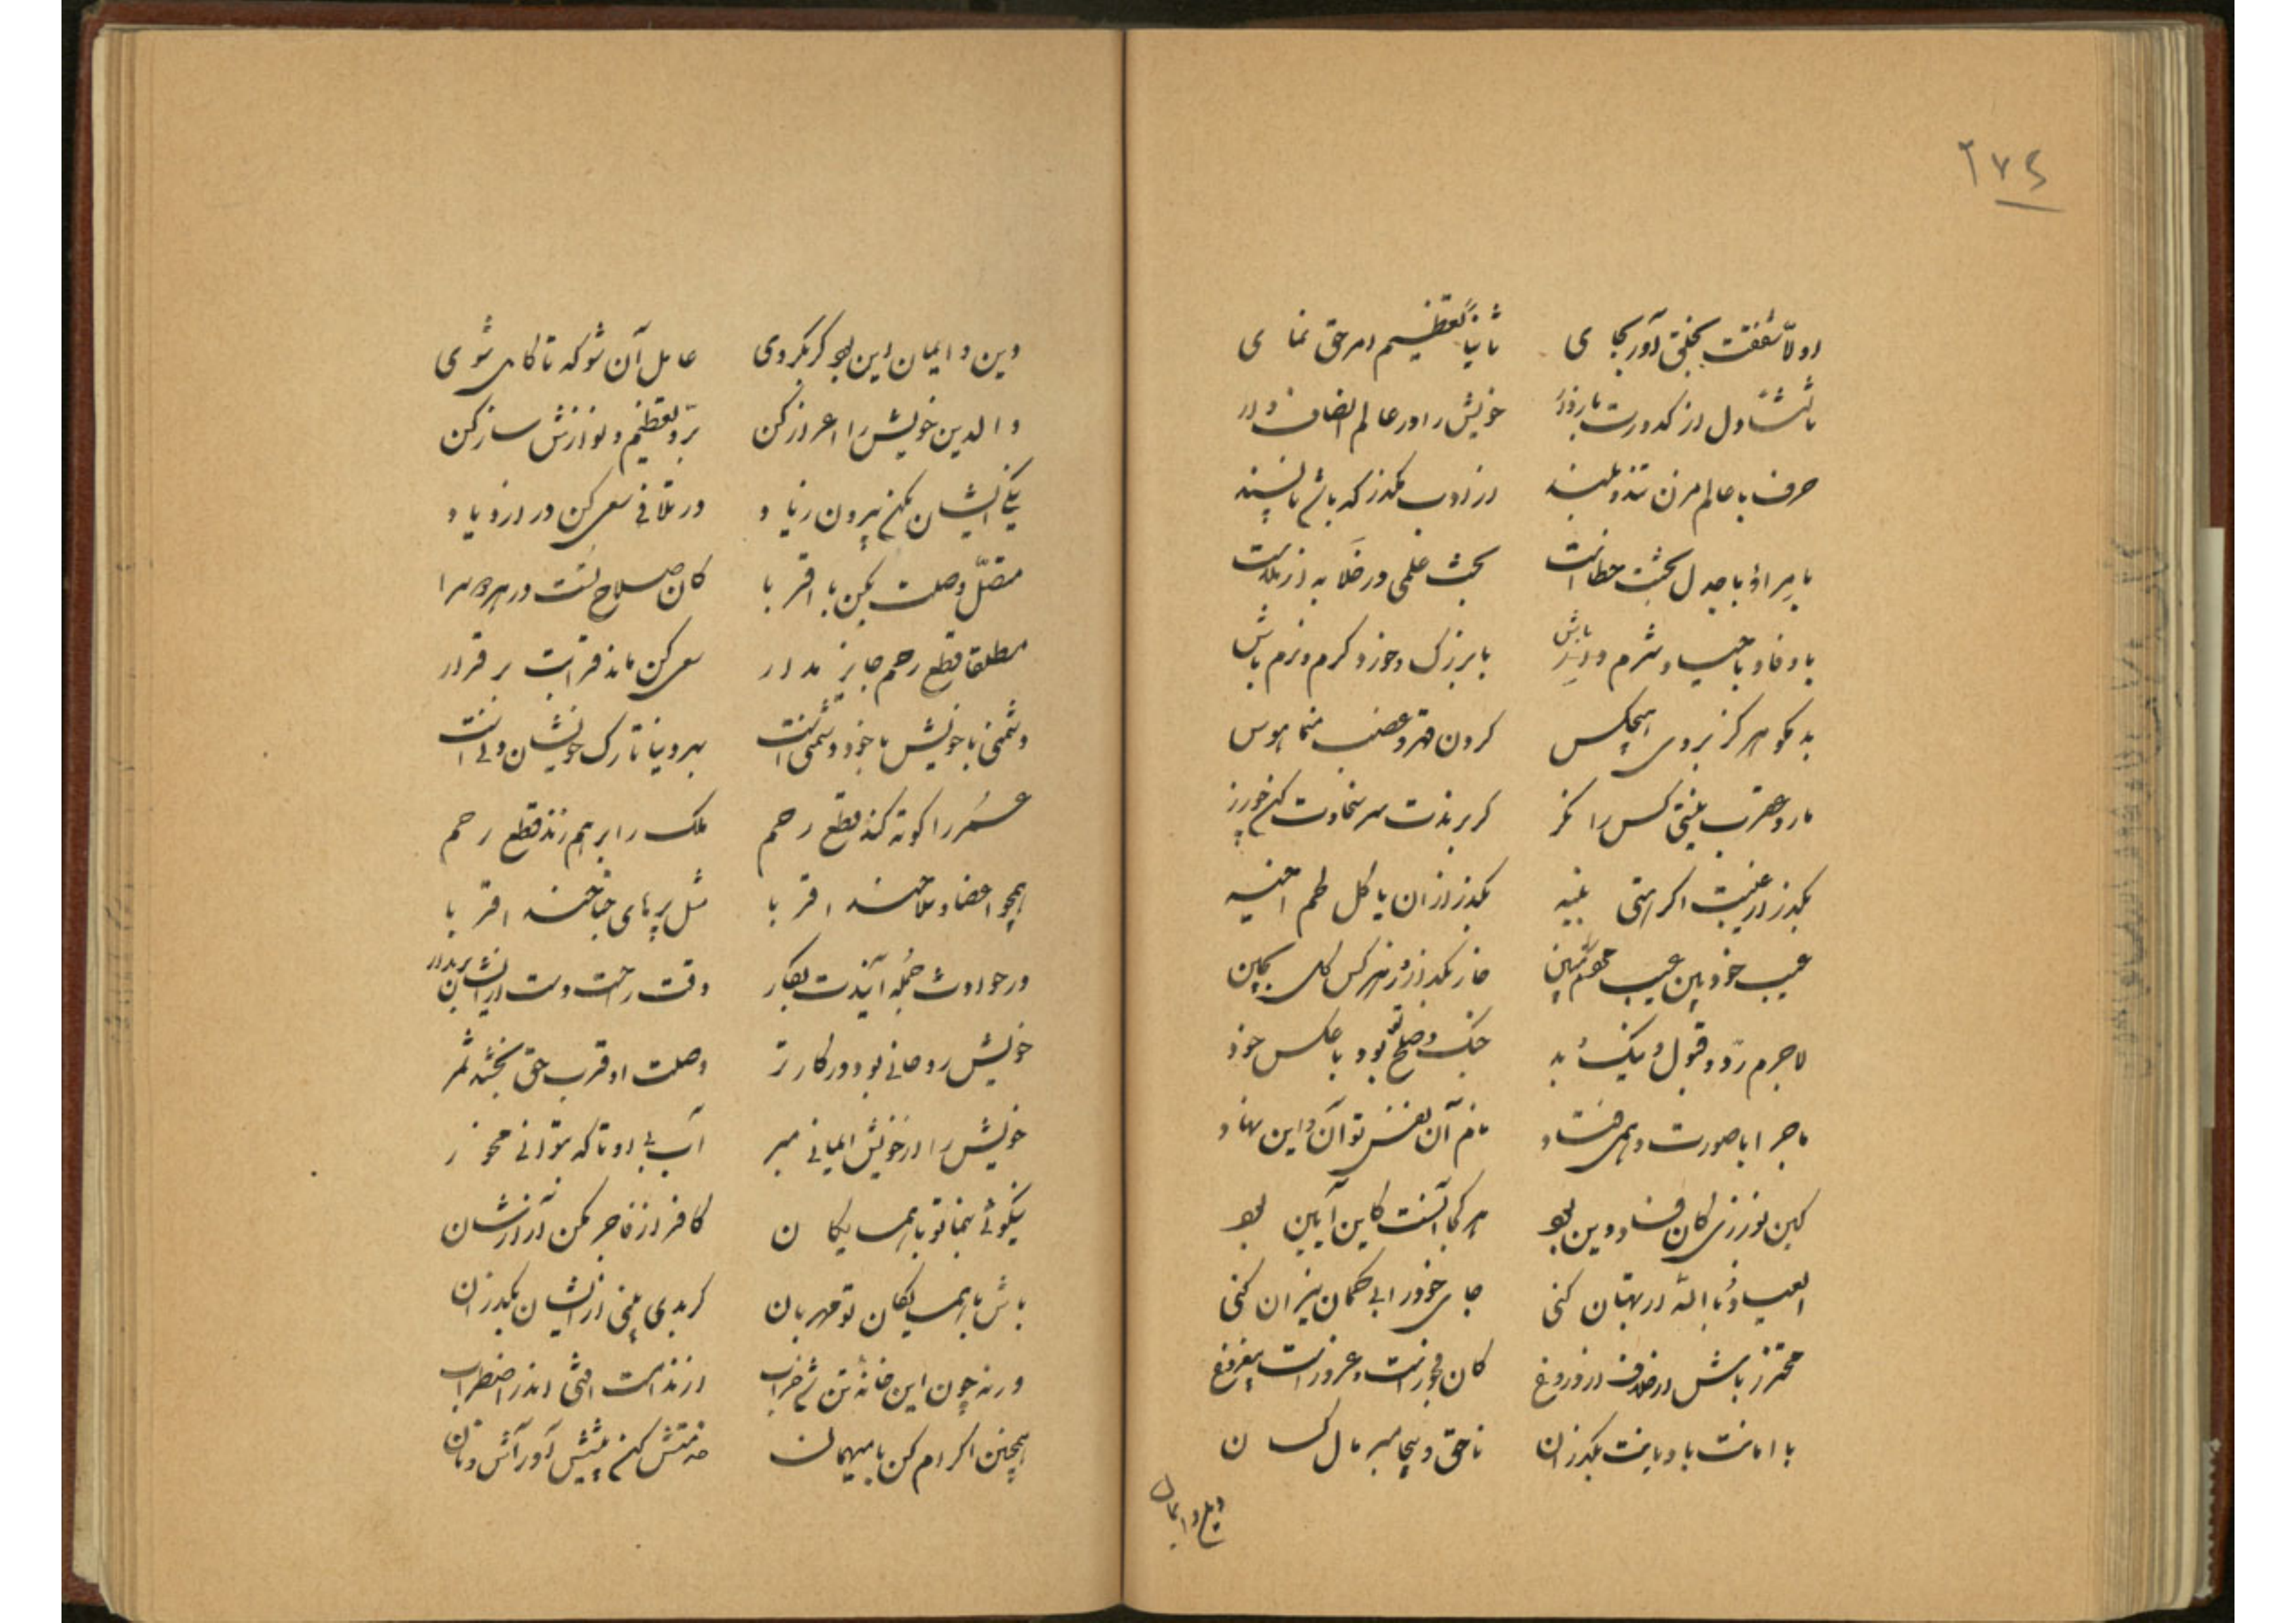 ۲۷۴
اولاً شفقت بخلق آور بجای ثانیاً تعظیم امر حق نمای
دل از کدورت باز دار خویش را در عالم انصاف دار
حرف با عالم مزن تند و بلند از ادب مگذر که باشی ناپسند
با مراء و با جدل بحث خطاست بحث علمی در خلا به از ملاست
با وفا و با حیا و شرم باش با بزرگ و خورد گرم و نرم باش
بد مگو هرگز بروی هیچکس کردن قهر و غضب منما هوس
مار و عقرب بینی کس را نگر گر برندت سر سخاوت کن
بگذر از غیبت اگر هستی نبیه بگذر از آن یا کل لحم اخیه
عیب خود بین عیب مردم مبین خار بگذار از هر کس گل بچین
لاجرم ردّ و قبول و نیک و بد جنگ و صلح تو بود با عکس خود
ماجرا با صورت وهمی فتاد نام آن نفس تو آن و این نهاد
کین نورزی کان فساد دین بود هر کجا آنست کاین آیین بود
العیاذ بالله ار بهتان کنی جای خود را بی گمان نیران کنی
محترز باش از خلاف و از دروغ کان فجور است و غرور است بیفروغ
با امانت با دیانت بگذران ناحق و بیجا مبر مال کسان
دین و ایمان
دین و ایمان این بود گر بگروی عامل آن شو که تا کامل شوی
والدین خویش را اعزاز کن برّ و تعظیم و نوازش ساز کن
نیکی ایشان مکن بیرون ز یاد در تلافی سعی کن در ازدیاد
متصل وصلت بکن با اقربا کان صلاح تست در هر دو سرا
مطلقا قطع رحم جایز مدار سعی کن ماند قرابت برقرار
دشمنی با خویش با خود دشمنی است بهر دنیا ترک خویشان دنی است
عمر را کوته کند قطع رحم ملک را برهم زند قطع رحم
همچو اعضا و سلاحند اقربا مثل پرهای جناحند اقربا
در حوادث جمله آیندت بکار وقت راحت دست از ایشان بر مدار
خویش روحانی بود در کارتر وصلت او قرب حق بخشد ثمر
خویش را از خویش ایمانی مبر آب بی او تا که بتوانی مخور
نیکوئی بنما تو با همسایگان کافر ار فاجر مکن آزارشان
باش با همسایگان تو مهربان گر بدی بینی از ایشان بگذران
ورنه چون این خانه تن شد خراب از ندامت افتی اندر اضطراب
همچنین اکرام کن با میهمان خدمتش کن پیش آور آش و نان